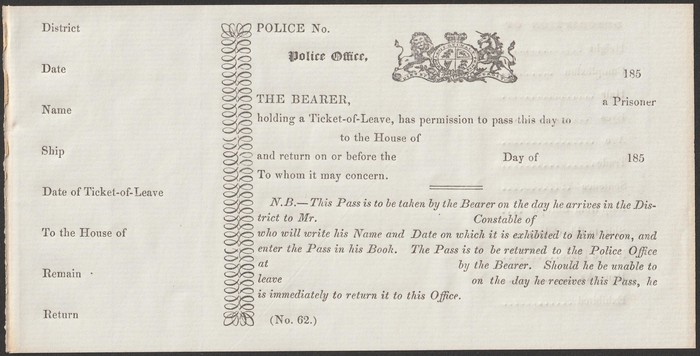 District
Date
Name
Ship
Date of Ticket-of-Leave
To the House of
Remain
Return
POLICE No.
Police Office,
185
THE BEARER, a Prisoner
holding a Ticket-of-Leave, has permission to pass this day to
to the House of
and return on or before the Day of 185
To whom it may concern.
N.B.—This Pass is to be taken by the Bearer on the day he arrives in the Dis-
trict to Mr. Constable of
who will write his Name and Date on which it is exhibited to him hereon, and
enter the Pass in his Book. The Pass is to be returned to the Police Office
at by the Bearer. Should he be unable to
leave on the day he receives this Pass, he
is immediately to return it to this Office.
(No. 62.)